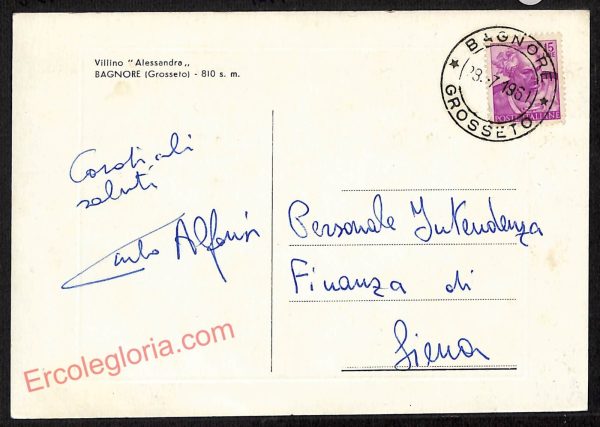 Villino "Alessandra„
BAGNORE (Grosseto) - 810 s. m.
BAGNORE
GROSSETO
15
POSTE ITALIANE
Cordiali
saluti
Carlo Alfonsi
Personale Intendenza
Finanza di
Siena
Ercolegloria.com